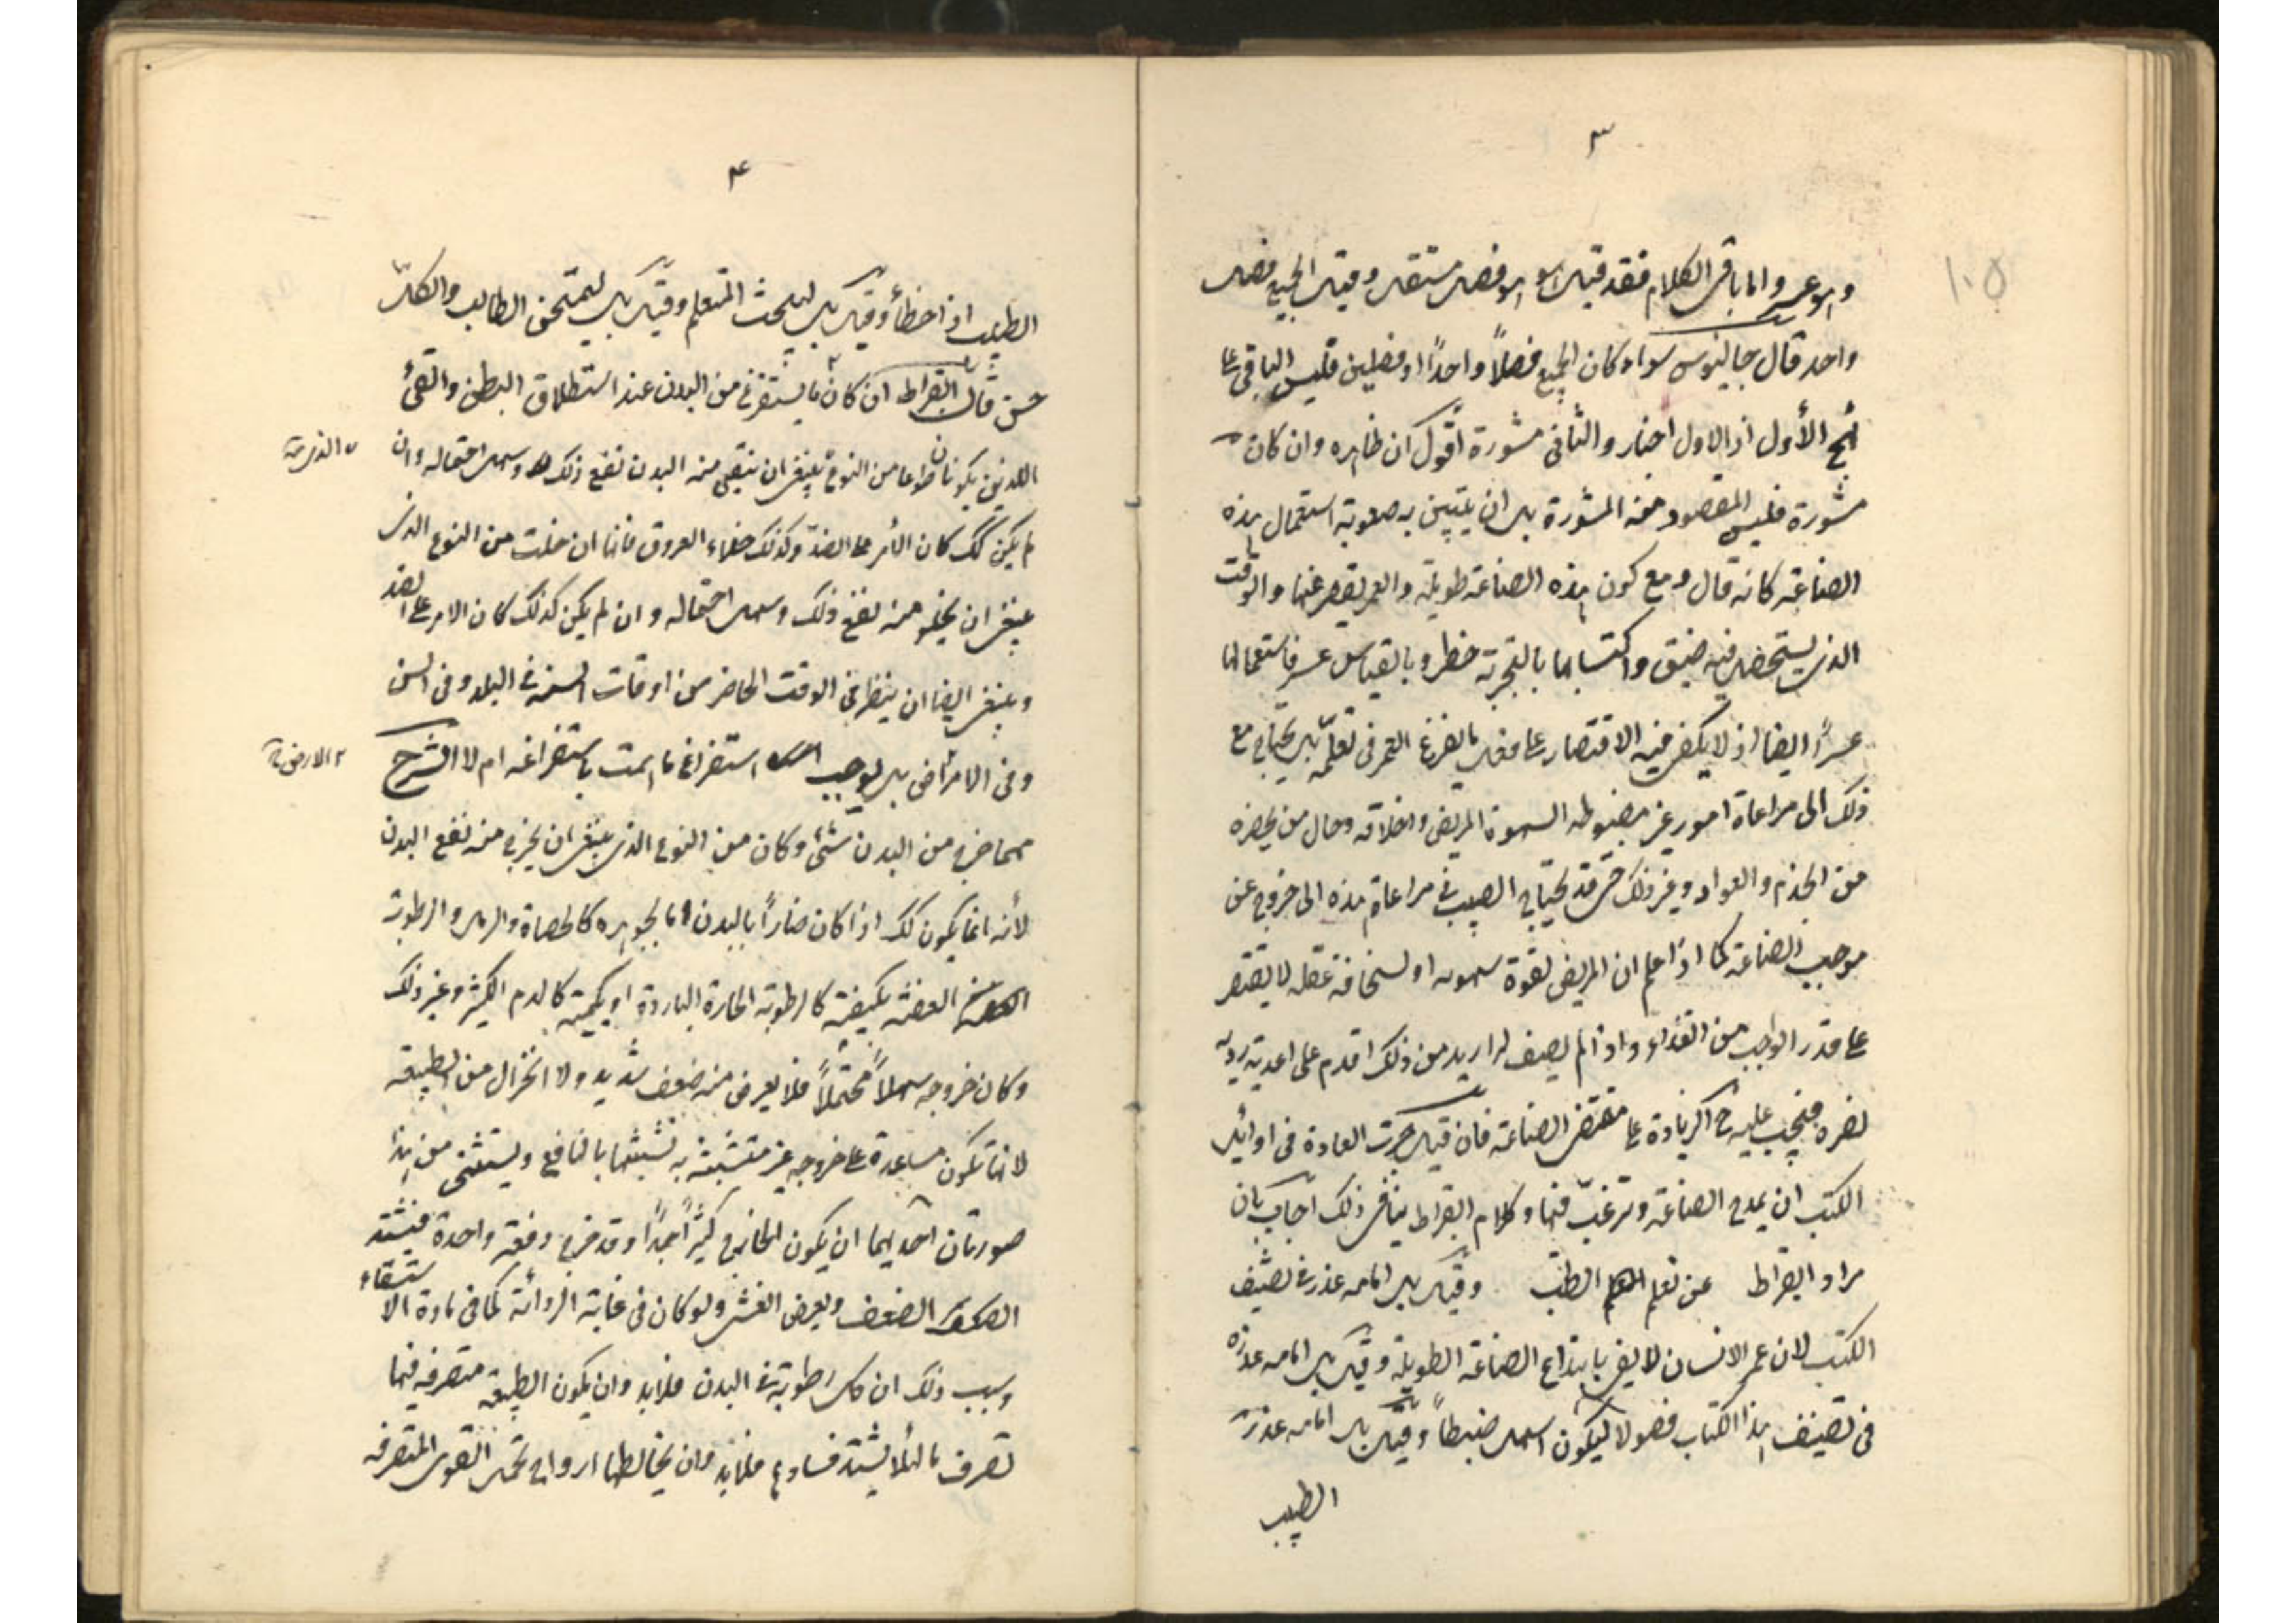 ٣
١٠٥
والاعسر واما باقى الكلام فقد قيل هو فصل مستقل وقيل الجميع فصل
واحد قال جالينوس سواء كان الجميع فصلاً واحداً او فصلين فليس الباقى على
نهج الأول اذ الاول اخبار والثانى مشورة أقول ان ظاهره وان كان
مشورة فليس المقصود منه المشورة بل ان يتبين به صعوبة استعمال هذه
الصناعة كانه قال ومع كون هذه الصناعة طويلة والعمر يقصر عنها والوقت
الذى يستحصل فيه ضيق واكتسابها بالتجربة خطر وبالقياس عسر فاستعمالها
عسراً ايضا اذ لا يكفى فيه الاقتصار على فعل ما لفرغ العمر فى تعلمه بل يحتاج مع
ذلك الى مراعاة امور غير مضبوطه السهوة المريض واخلاقه وحال من يحضره
من الخدم والعواد وغير ذلك حتى قد يحتاج الطبيب فى مراعاة هذه الى خروج عن
موجب الصناعة كما اذا علم ان المريض لقوة سهوته او لسخافة عقله لا يقتصر
على قدر الواجب من الغذاء واذا لم يصف له ازيد من ذلك اقدم على اغدية رديه
تضره فيجب عليه ح الزيادة على مقتضى الصناعة فان قيل جرت العادة فى اوائل
الكتب ان يمدح الصناعة وترغب فيها وكلام ابقراط ينافى ذلك اجاب بان
مراد ابقراط عن تعلم الطب وقيل بل اقامه عذر فى تصنيف
الكتب لان عمر الانسان لا يفى بابتداع الصناعة الطويلة وقيل بل اقامه عذره
فى تصنيف هذا الكتاب فصولا ليكون اسهل ضبطاً وقيل بل اقامه عذر
الطبيب
۴
الطبيب اذا اخطأ وقيل بل ليلحث المتعلم وقيل بل ليمتحن الطالب والكل
حسن قال ابقراط ان كان ما يستفرغ من البدن عند استطلاق البطن والقئ
اللذين يكونان طوعا من النوع ينبغى ان ينقى منه البدن نفع ذلك وسهل احتماله وان
الذى
لم يكن كك كان الأمر على الضد وكذلك خلاء العروق فانها ان خلت من النوع الذى
ينبغى ان يخلو منه نفع ذلك وسهل احتماله وان لم يكن كذلك كان الامر على الضد
وينبغى ايضا ان ينظر فى الوقت الحاضر من اوقات السنة فى البلد وفى السن
وفى الامراض هل يوجب استفراغ ما همت باستفراغه ام لا الشرح
الامراض
مهما خرج من البدن شئ وكان من النوع الذى ينبغى ان يخرج منه نفع البدن
لأنه انما يكون كك اذا كان ضاراً بالبدن اما بجوهره كالحصاة والرمل والرطوبة
العفنة بكيفية كالرطوبة الحارة الباردة او بكمية كالدم الكثير وغير ذلك
وكان خروجه سهلاً محتملاً فلا يعرض منه ضعف شديد ولا انخزال من الطبيعة
لانها تكون مساعدة على خروجه غير متشبثة به تشبثها بالنافع ويستثنى من هذا
صورتان احديهما ان يكون الخارج كثيراً جداً وقد خرج دفعة واحدة فيشتد
الضعف ويعرض الغشى ولو كان فى غاية الردائة كما فى مادة الاستسقاء
وسبب ذلك ان كل رطوبة فى البدن فلا بد وان يكون الطبيعة متصرفه فيها
تصرف ما لئلا يشتد فسادها فلا بد وان يخالطها ارواح تحمل القوى المتصرفه